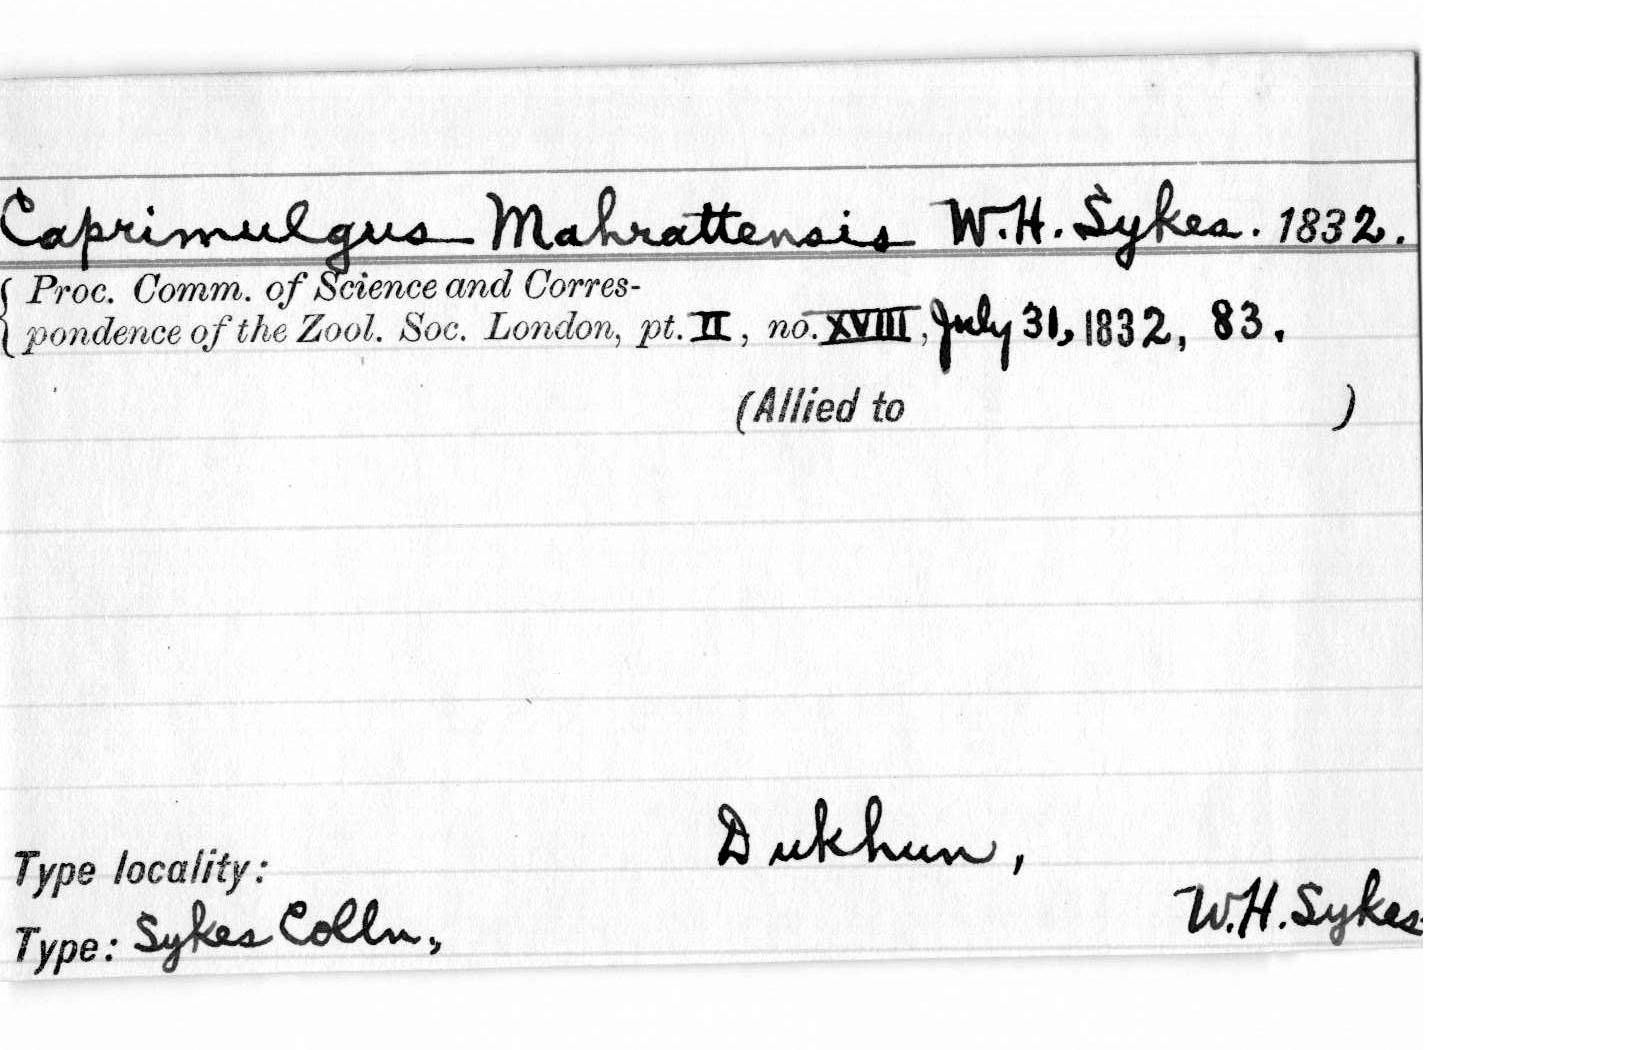 Caprimulgus Mahrattensis W.H. Sykes. 1832.
Proc. Comm. of Science and Corres-
pondence of the Zool. Soc. London, pt. II, no. XVIII, July 31, 1832, 83.
(Allied to )
Dukhun,
Type locality:
W.H. Sykes
Type: Sykes Colln,